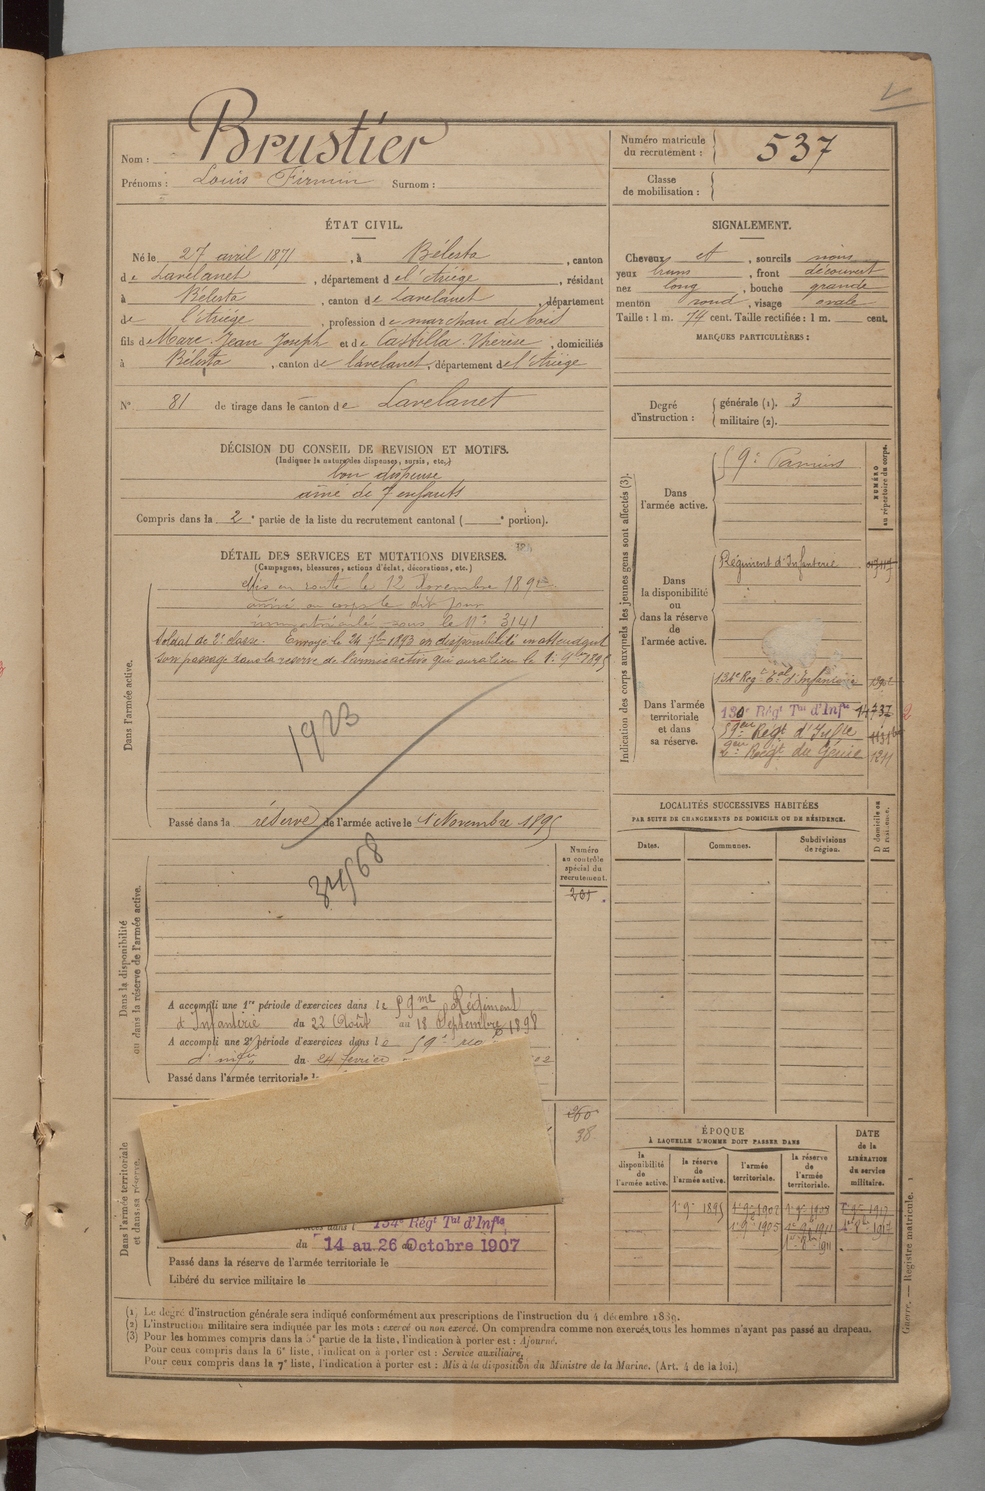 Nom : Brustier
Prénoms : Louis Firmin Surnom :
Numéro matricule du recrutement : 537
Classe de mobilisation :
ÉTAT CIVIL.
Né le 27 avril 1871, à Bélesta, canton
de Lavelanet, département de l'Ariège, résidant
à Bélesta, canton de Lavelanet, département
de l'Ariège, profession de marchan de bois
fils de Marc Jean Joseph et de Castilla Thérèse, domiciliés
à Bélesta, canton de Lavelanet, département de l'Ariège
N° 81 de tirage dans le canton de Lavelanet
SIGNALEMENT.
Cheveux et, sourcils noirs
yeux bruns, front découvert
nez long, bouche grande
menton rond, visage ovale
Taille : 1 m. 74 cent. Taille rectifiée : 1 m. cent.
MARQUES PARTICULIÈRES :
Degré d'instruction : générale (1). 3
militaire (2).
DÉCISION DU CONSEIL DE REVISION ET MOTIFS.
(Indiquer la nature des dispenses, sursis, etc.)
bon dispensé
aîné de 7 enfants
Compris dans la 2e partie de la liste du recrutement cantonal ( e portion).
DÉTAIL DES SERVICES ET MUTATIONS DIVERSES.
(Campagnes, blessures, actions d'éclat, décorations, etc.)
Dans l'armée active.
Mis en route le 12 Novembre 1892
arrivé au corps le dit jour
immatriculé sous le N° 3141
Soldat de 2e classe. Envoyé le 24 7bre 1893 en disponibilité en attendant
son passage dans la réserve de l'armée active qui aura lieu le 1er 9bre 1895
1923
Passé dans la réserve de l'armée active le 1 Novembre 1895
Dans la disponibilité ou dans la réserve de l'armée active.
Numéro au contrôle spécial du recrutement.
201
A accompli une 1re période d'exercices dans le 59me Régiment
d'Infanterie du 22 Août au 18 Septembre 1898
A accompli une 2e période d'exercices dans le 59e
d'infie du 24 février
Passé dans l'armée territoriale le
Dans l'armée territoriale et dans sa réserve.
260
98
134e Régt Tal d'Infie
du 14 au 26 Octobre 1907
Passé dans la réserve de l'armée territoriale le
Libéré du service militaire le
Indication des corps auxquels les jeunes gens sont affectés (3).
NUMÉRO au répertoire du corps.
Dans l'armée active.
59e Pamiers
Dans la disponibilité ou dans la réserve de l'armée active.
Régiment d'Infanterie
Dans l'armée territoriale et dans sa réserve.
134e Régt Tal d'Infanterie
130e Régt Tal d'Infie
59eme Régt d'Infie
2eme Régt du Génie 1211
LOCALITÉS SUCCESSIVES HABITÉES
PAR SUITE DE CHANGEMENTS DE DOMICILE OU DE RÉSIDENCE.
Dates. Communes. Subdivisions de région. D domicile ou R résidence.
ÉPOQUE
À LAQUELLE L'HOMME DOIT PASSER DANS
la disponibilité de l'armée active. la réserve de l'armée active. l'armée territoriale. la réserve de l'armée territoriale.
DATE de la LIBÉRATION du service militaire.
1er 9e 1895 1er 9e 1902 1er 9e 1908
1er 9e 1905 1er 9e 1911
(1) Le degré d'instruction générale sera indiqué conformément aux prescriptions de l'instruction du 4 décembre 1889.
(2) L'instruction militaire sera indiquée par les mots : exercé ou non exercé. On comprendra comme non exercés, tous les hommes n'ayant pas passé au drapeau.
(3) Pour les hommes compris dans la 5e partie de la liste, l'indication à porter est : Ajourné.
Pour ceux compris dans la 6e liste, l'indication à porter est : Service auxiliaire.
Pour ceux compris dans la 7e liste, l'indication à porter est : Mis à la disposition du Ministre de la Marine. (Art. 4 de la loi.)
Guerre. — Registre matricule. 1